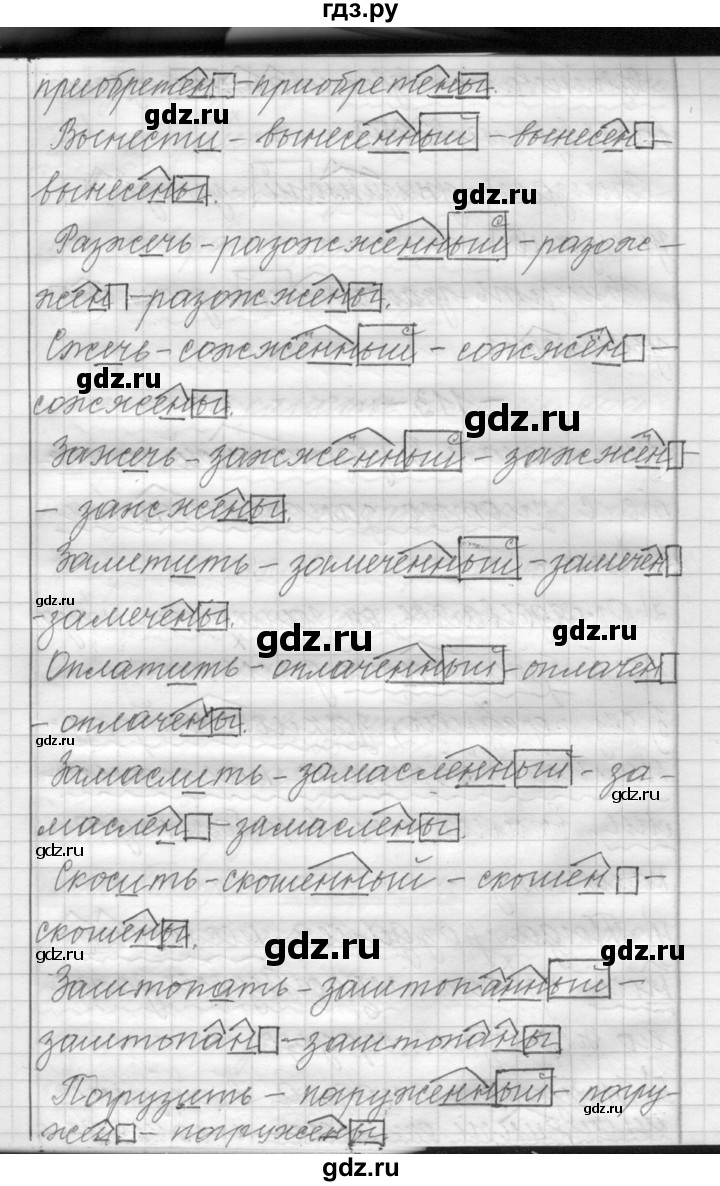 гдз.ру
приобретен – приобретены.
gdz.ru
Вынести – вынесенный – вынесен –
вынесены.
gdz.ru
Разжечь – разожженный – разож–
жен – разожжены.
gdz.ru
Сжечь – сожжённый – сожжён –
gdz.ru
сожжены.
gdz.ru
Зажечь – зажжённый – зажжён –
– зажжены.
Заметить – замеченный – замечен
gdz.ru
– замечены.
gdz.ru
gdz.ru
Оплатить – оплаченный – оплачен
– оплачены.
gdz.ru
Замаслить – замасленный – за–
gdz.ru
маслен – замаслены.
gdz.ru
Скосить – скошенный – скошен –
скошены.
gdz.ru
gdz.ru
gdz.ru
Заштопать – заштопанный –
заштопан – заштопаны
Погрузить – погруженный – погру–
gdz.ru
жен – погружены
gdz.ru